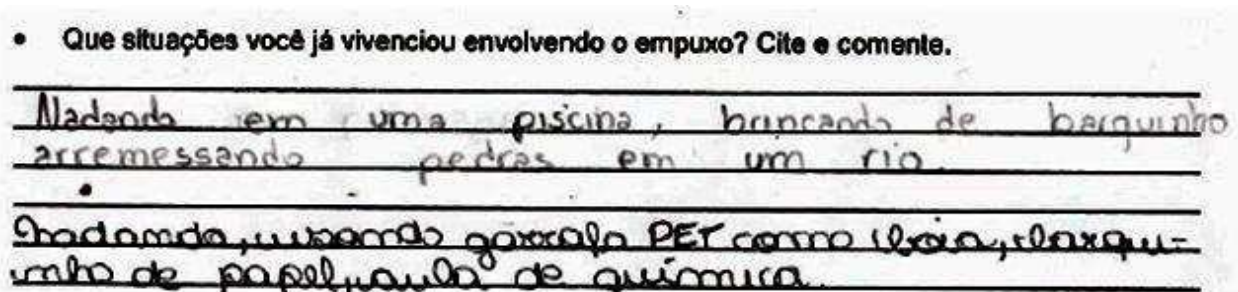 • Que situações você já vivenciou envolvendo o empuxo? Cite e comente.
Nadando em uma piscina, brincando de barquinho
arremessando pedras em um rio.
Nadando, usando garrafa PET como boia, barqui-
nho de papel, aula de química.